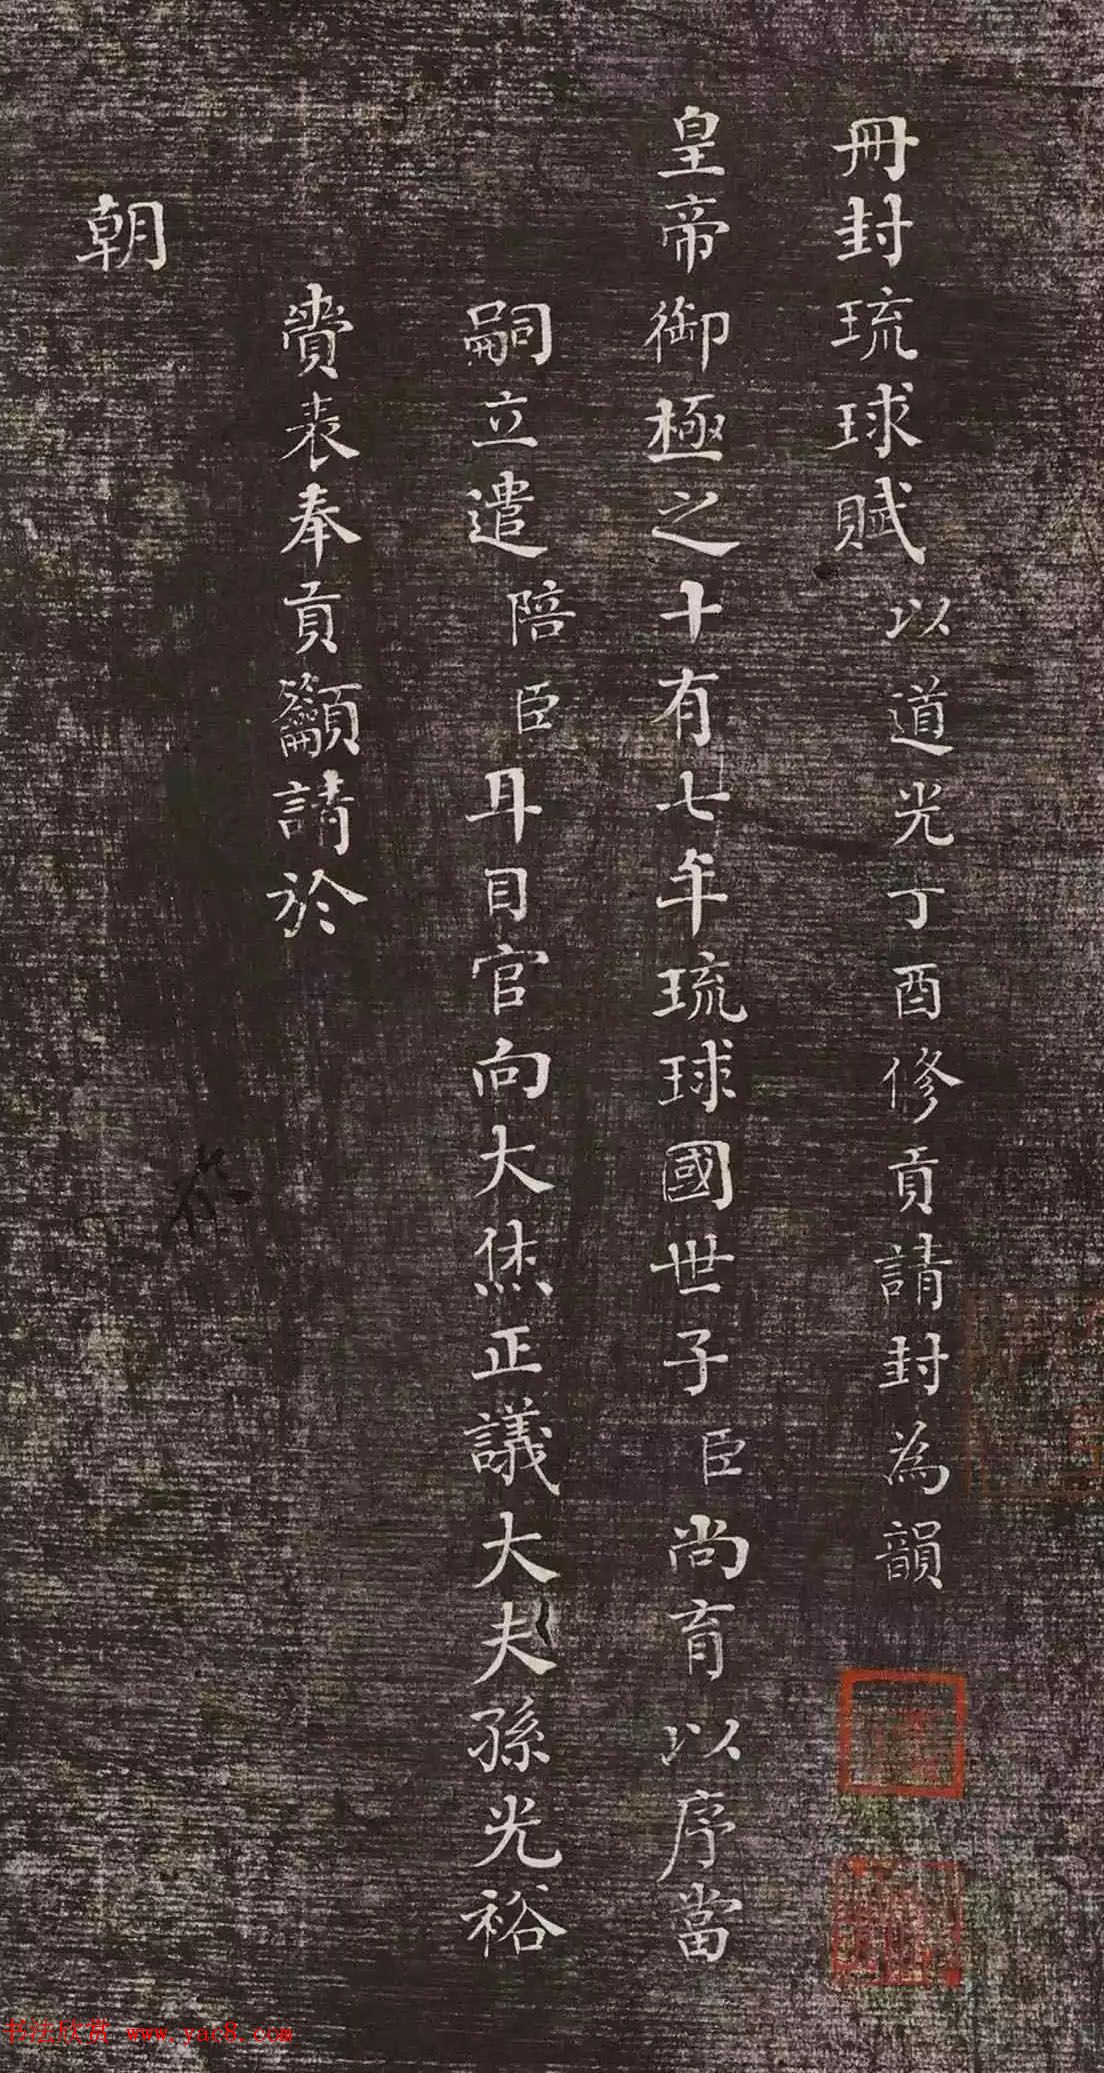 冊封琉球賦以道光丁酉修貢請封為韻
皇帝御極之十有七年琉球國世子臣尚育以序當
嗣立遣陪臣耳目官向大烋正議大夫孫光裕
賫表奉貢籲請於
朝
书法欣赏 www.yac8.com